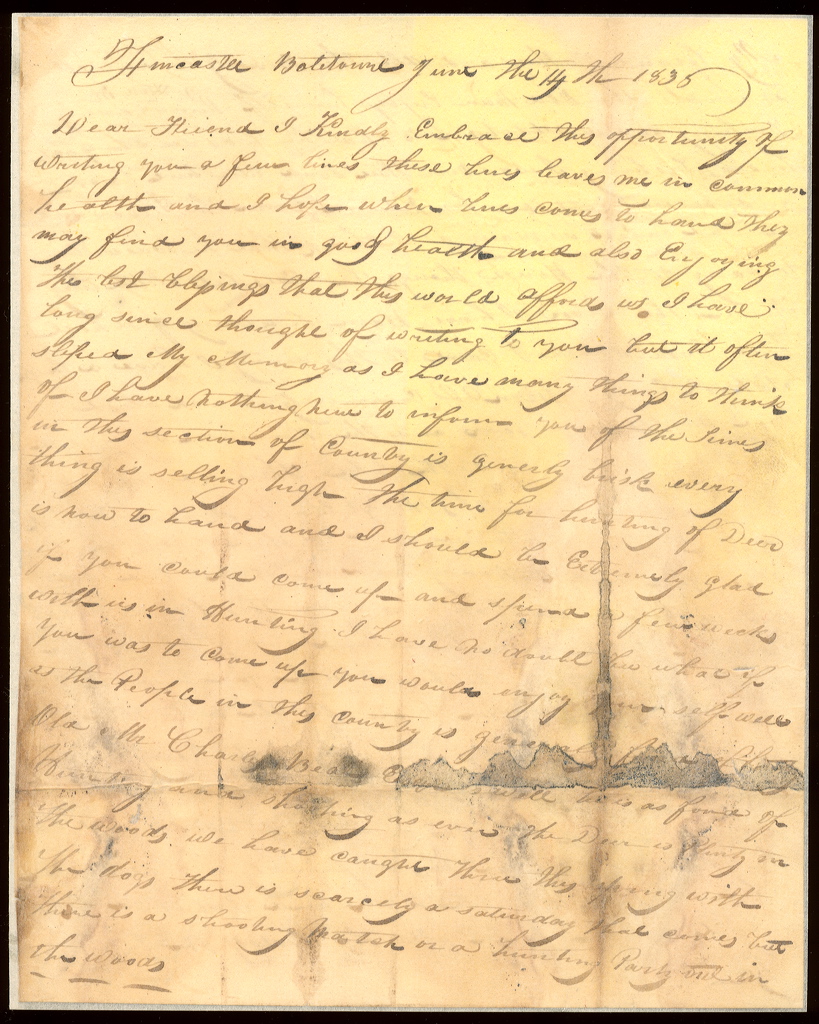 Fincastle Botetourt June the 14th 1835
Dear Friend I Kindly Embrace this opportunity of
writing you a few lines these lines leaves me in common
health and I hope when lines comes to hand they
may find you in good health and also Enjoying
the best blessings that this world affords us I have
long since thought of writing to you but it often
sliped My Memory as I have many things to think
of I have Nothing new to inform you of the times
in this section of Country is generly brisk every
thing is selling high the time for hunting of Deer
is now to hand and I should be Extremely glad
if you could come up and spend a few weeks
with us in Hunting I have no doubt but what if
you was to come up you would enjoy your self well
as the People in this County is general
Old Mr Charles well he is as fond of
Hunting and shooting as ever the Deer is plenty in
the woods we have caught three this spring with
the dogs there is scarcely a saturday that comes but
there is a shooting Match or a hunting Party out in
the woods